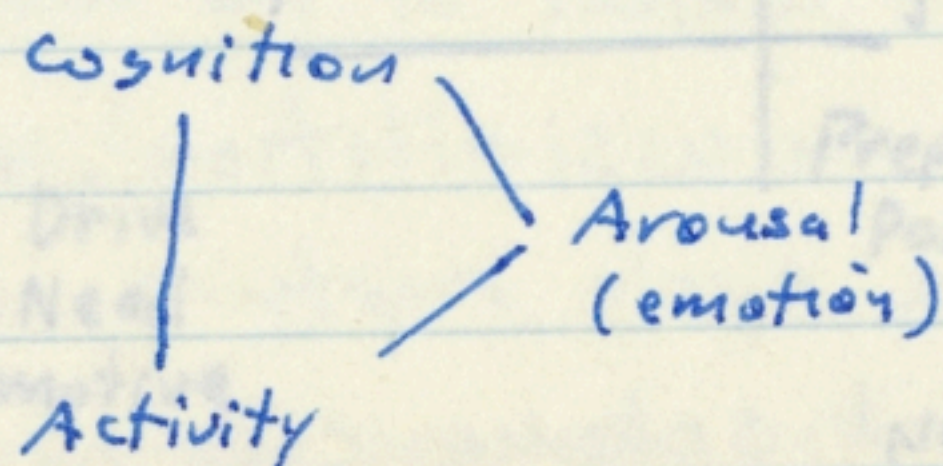 Cognition
Arousal
(emotion)
Activity